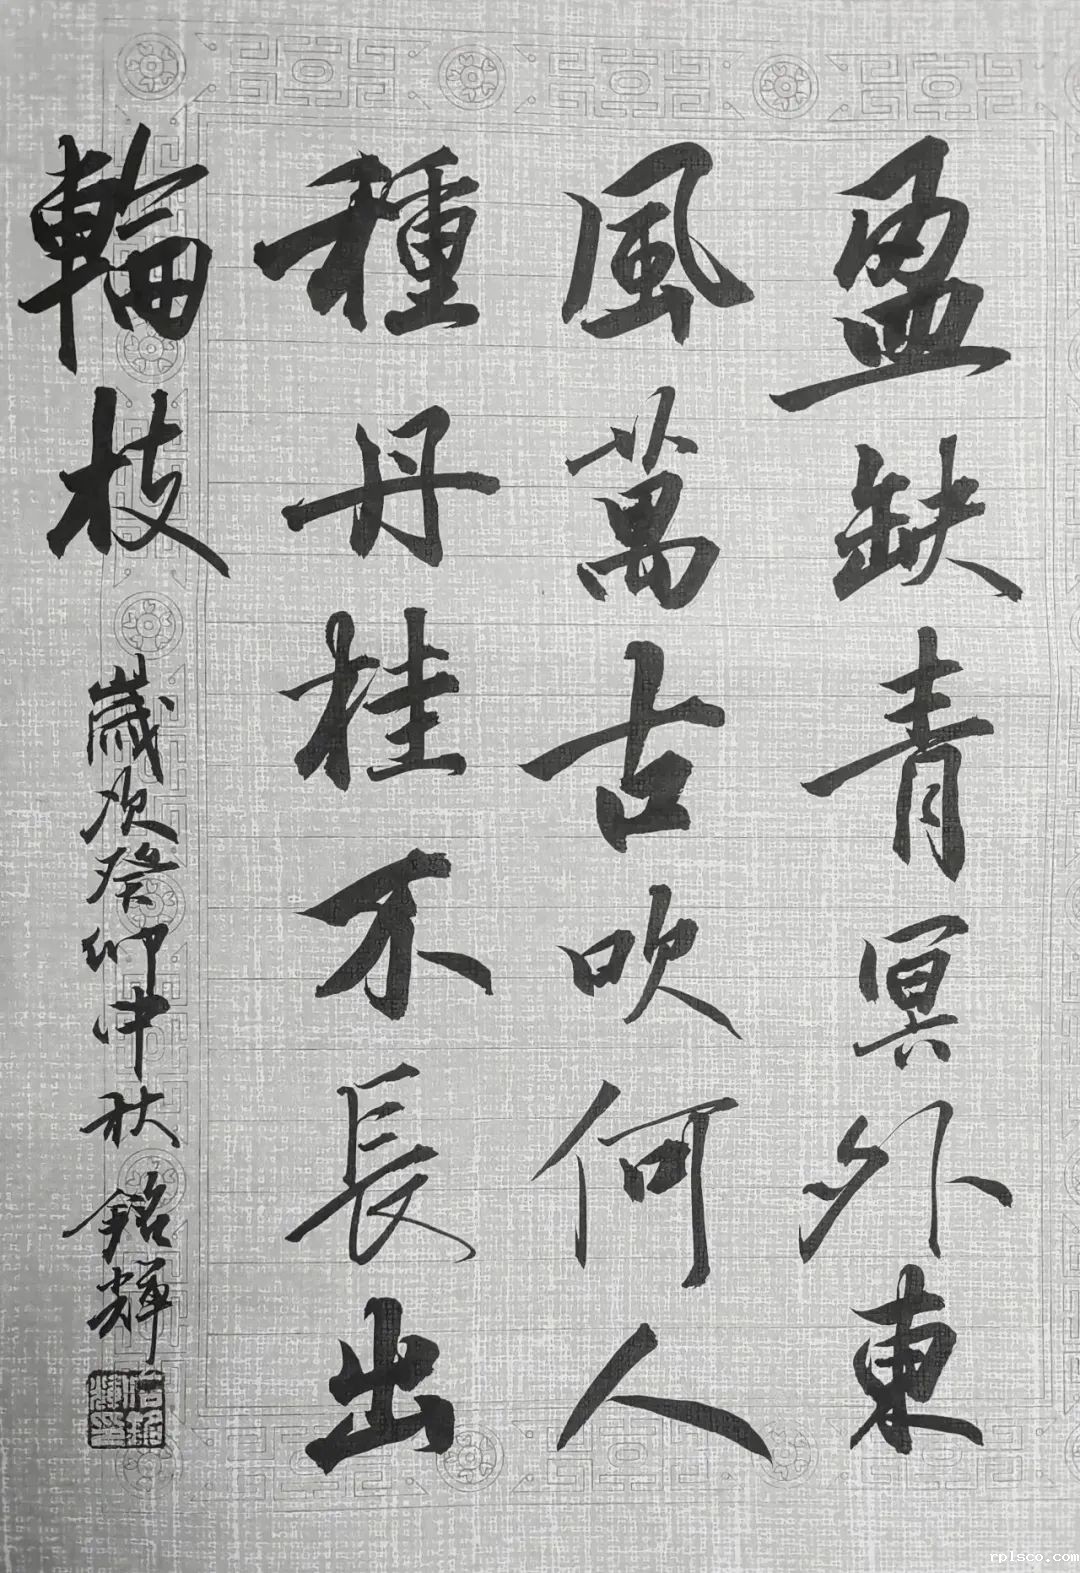 盈缺青冥外東
風萬古吹何人
種丹桂不長出
輪枝
歲次癸卯中秋 銘輝
rplsco.com